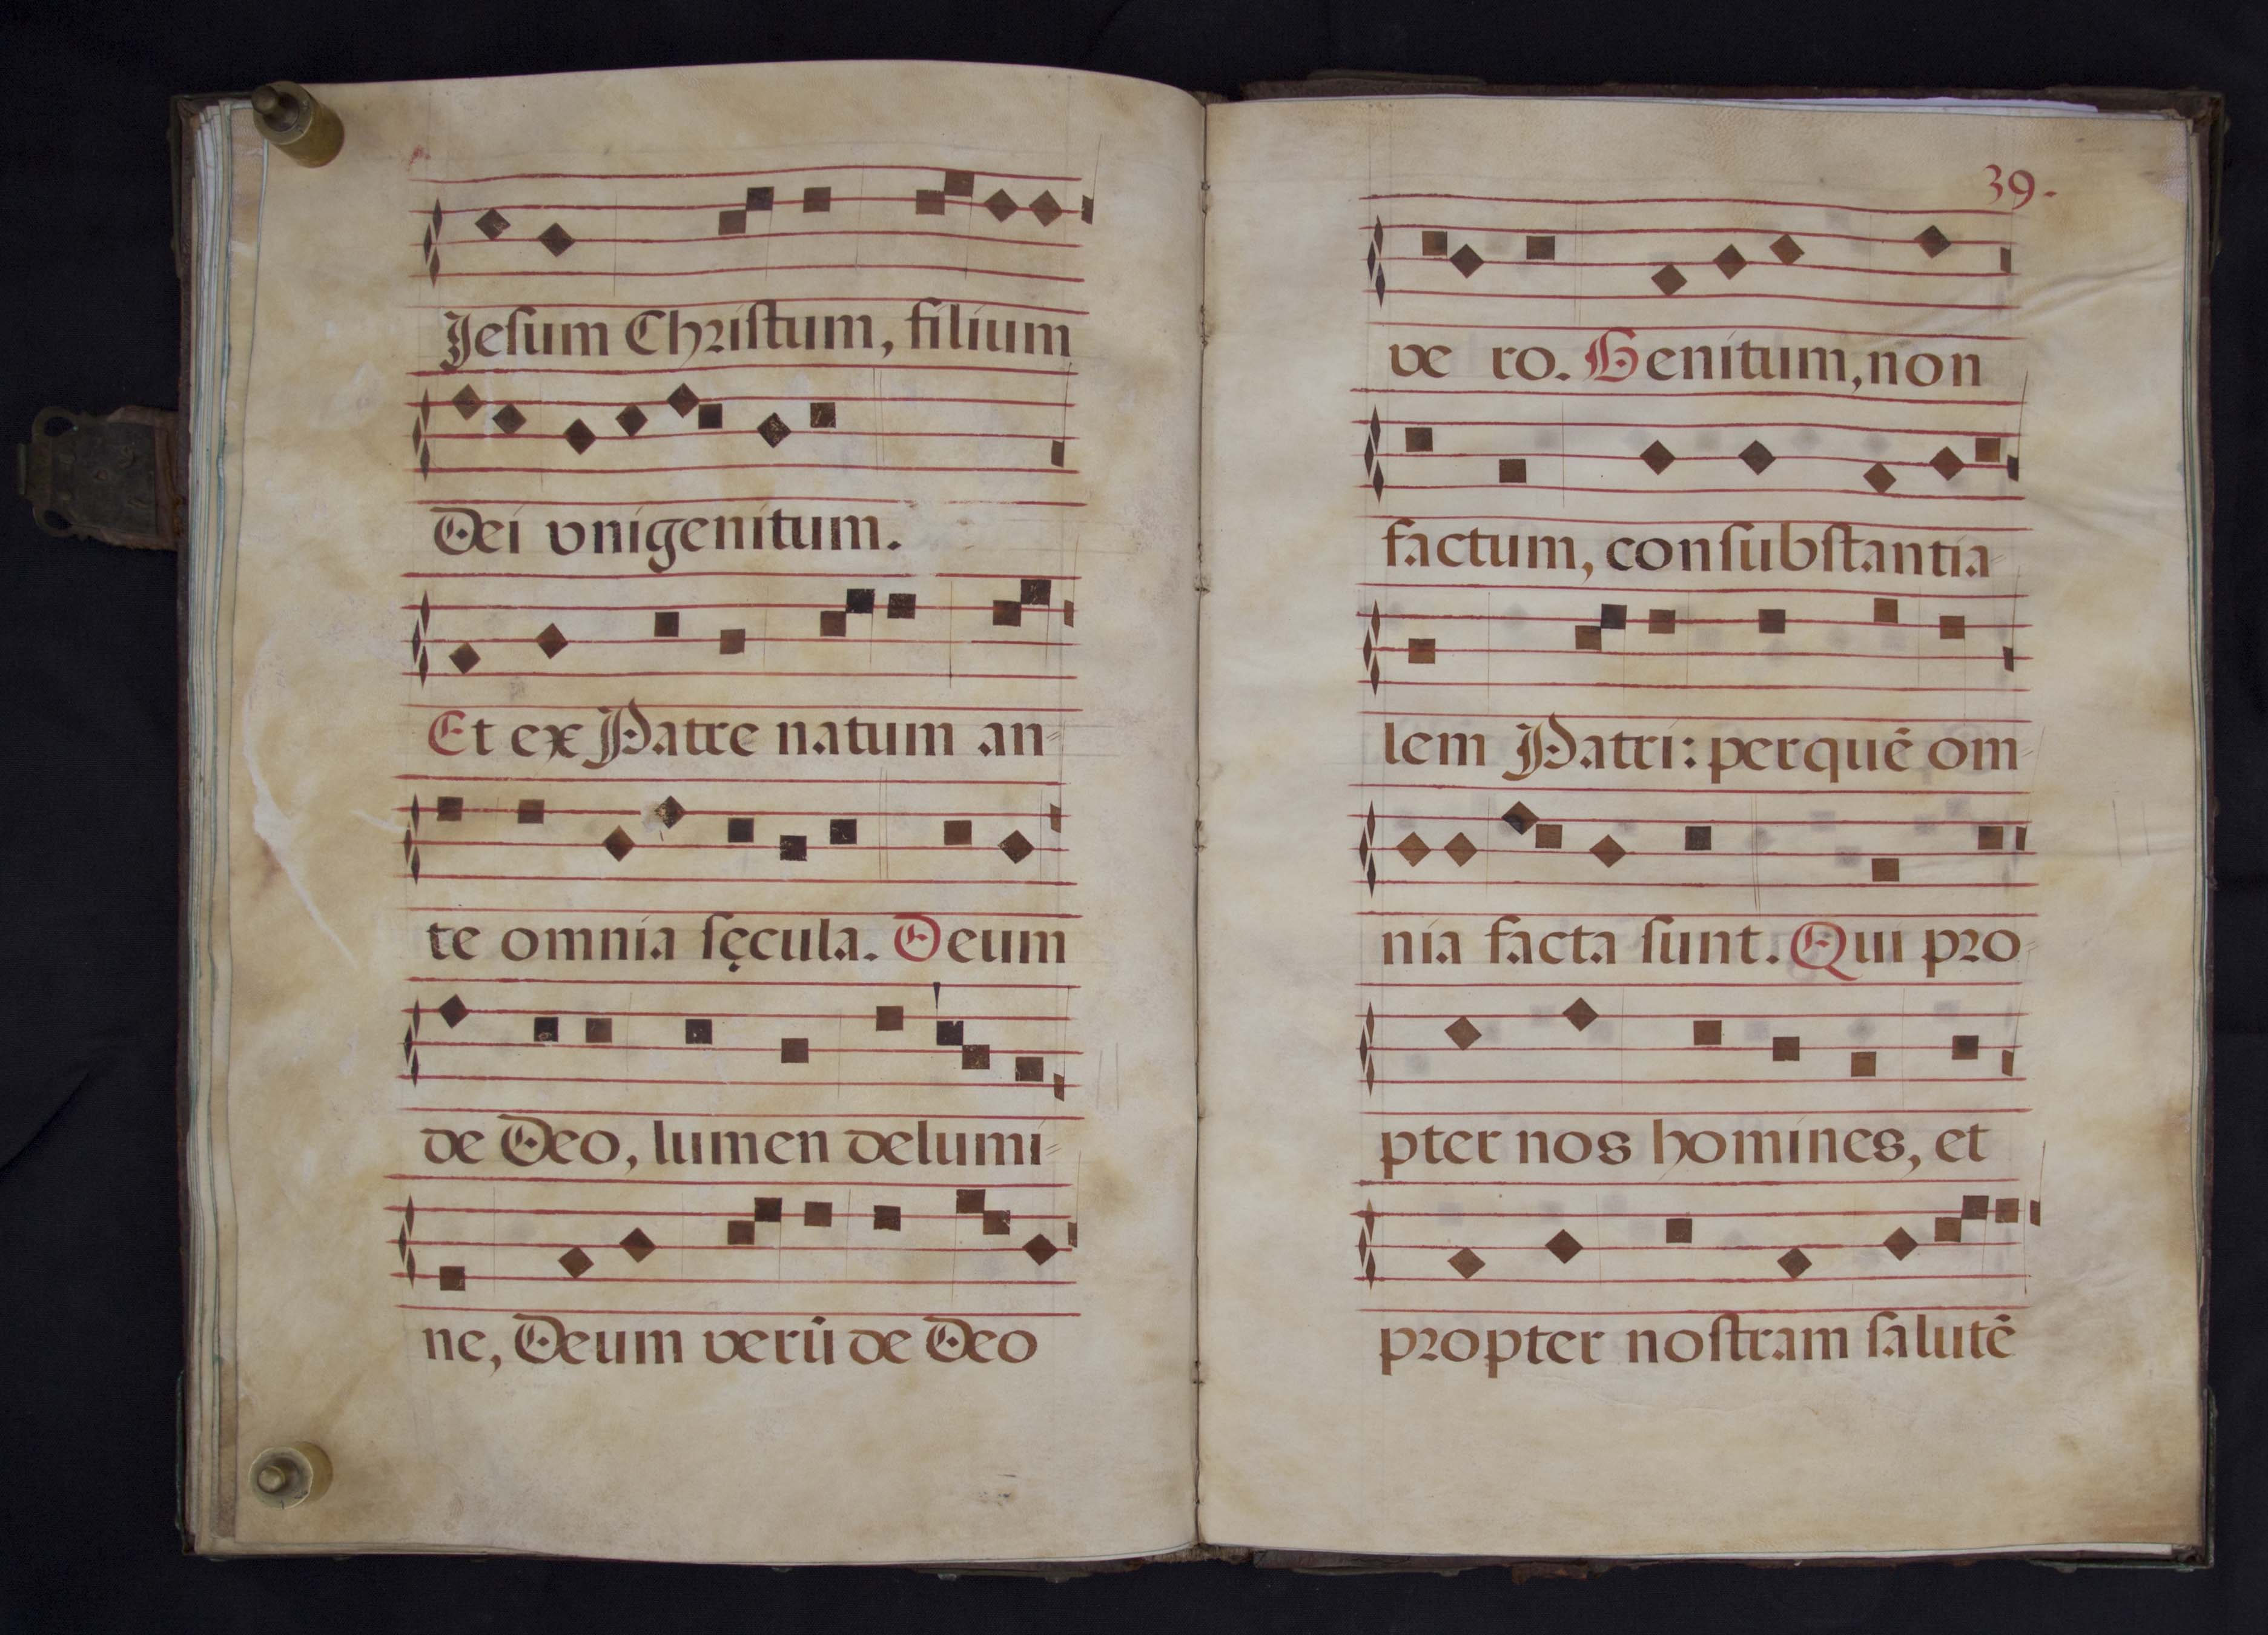 Jeſum Chriſtum, filium
Dei vnigenitum.
Et ex Patre natum an-
te omnia ſęcula. Deum
de Deo, lumen delumi-
ne, Deum verū de Deo
39.
ve ro. Genitum, non
factum, conſubſtantia-
lem Patri: perquē om-
nia facta ſunt. Qui pro-
pter nos homines, et
propter noſtram ſalutē